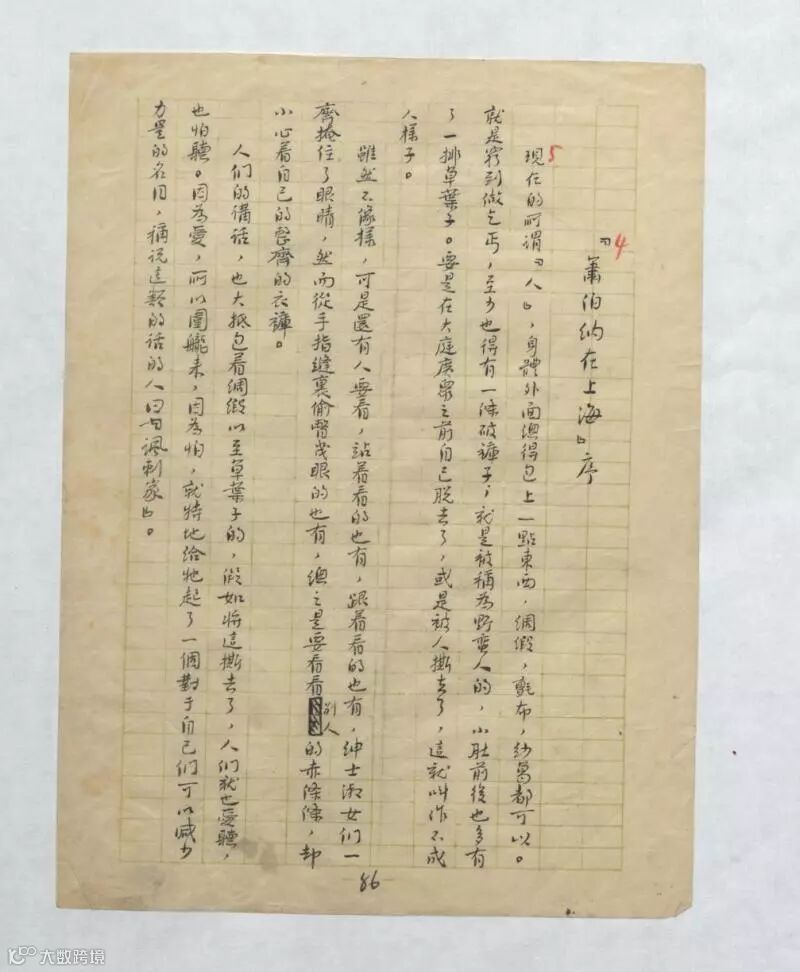 4
『蕭伯納在上海』序
5
現在的所謂『人』,身體外面總得包上一點東西,綢緞,氈布,紗葛都可以。
就是窮到做乞丐,至少也得有一條破褲子;就是被稱為野蠻人的,小肚前後也多有
了一排草葉子。要是在大庭廣眾之前自己脫去了,或是被人撕去了,這就叫作不成
人樣子。
雖然不像樣,可是還有人要看,站着看的也有,跟着看的也有,紳士淑女們一
齊掩住了眼睛,然而從手指縫裏偷瞥幾眼的也有,總之是要看看別人的赤條條,却
小心着自己的整齊的衣褲。
人们的講話,也大抵包着綢緞以至草葉子的,假如將這撕去了,人们就也愛聽,
也怕聽。因為愛,所以圍攏來,因為怕,就特地給牠起了一個對于自己們可以減少
力量的名目,稱說這類的話的人曰『諷刺家』。
86
大数跨境